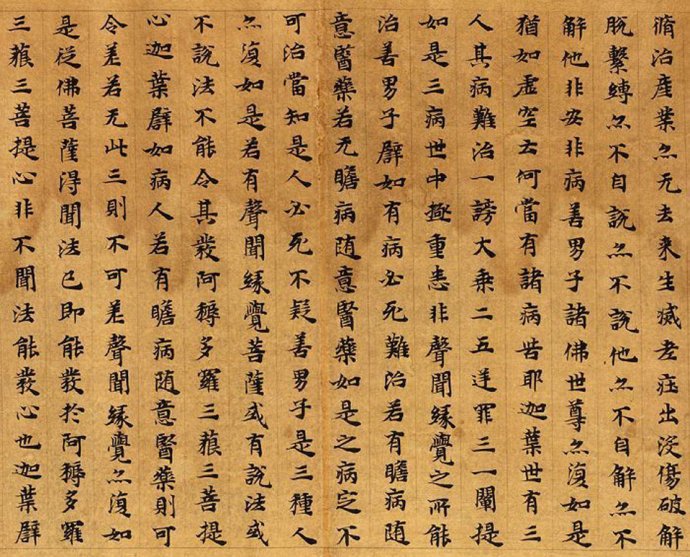 脩治產業亦无去来生滅老壯出没傷破解
脫繫縛亦不自說亦不說他亦不自解亦不
解他非安非病善男子諸佛世尊亦復如是
猶如虛空云何當有諸病苦耶迦葉世有三
人其病難治一謗大乘二五逆罪三一闡提
如是三病世中極重悉非聲聞緣覺之所能
治善男子譬如有病必死難治若有瞻病随
意醫藥若无瞻病随意醫藥如是之病定不
可治當知是人必死不疑善男子是三種人
亦復如是若有聲聞緣覺菩薩或有說法或
不說法不能令其發阿耨多羅三藐三菩提
心迦葉譬如病人若有瞻病随意醫藥則可
令差若无此三則不可差聲聞緣覺亦復如
是從佛菩薩得聞法已即能發於阿耨多羅
三藐三菩提心非不聞法能發心也迦葉譬